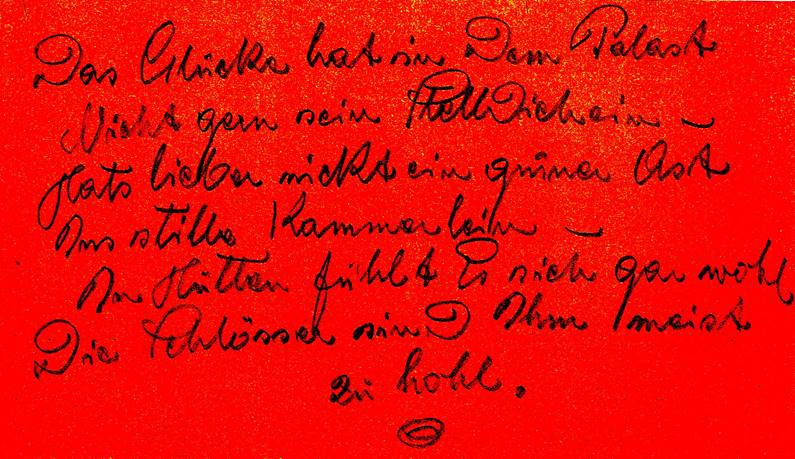 Das Glücke hat in Dem Palast
Nicht gern sein StellDichein –
Hats lieber nickt ein grüner Ast
Ins stille Kammerlein –
In Hütten fühlt Es sich gar wohl
Die Schlösser sinD Ihm meist
zu hohl.